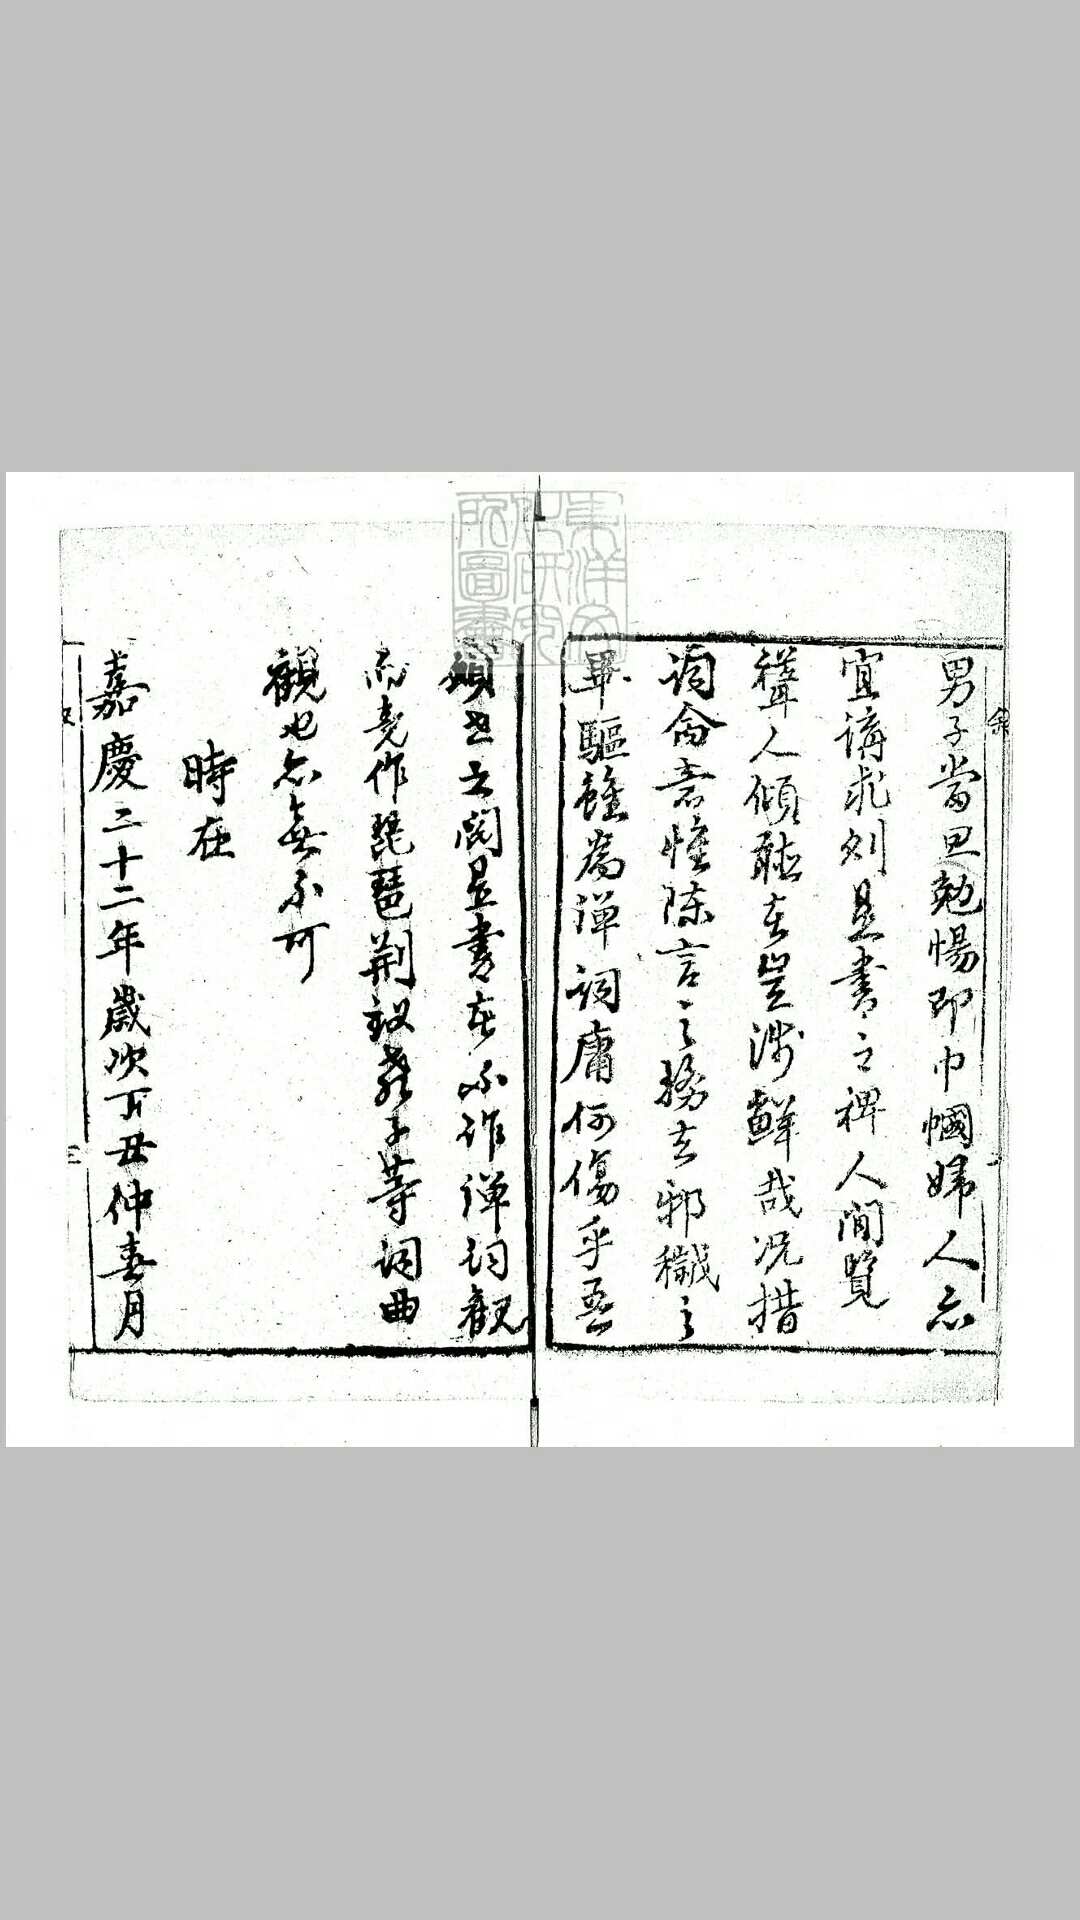 男子當思勉惕即巾幗婦人亦
宜講求則是書之裨人間覽
聳人傾聽者豈淺鮮哉況措
詞命意惟陳言之務去邪穢之
畢驅雖為彈詞庸何傷乎吾
願世之閱是書者不作彈詞觀
而竟作琵琶荊釵孝子等詞曲
觀也亦無不可
時在
嘉慶二十二年歲次丁丑仲春月
三
東洋文化研究所圖書